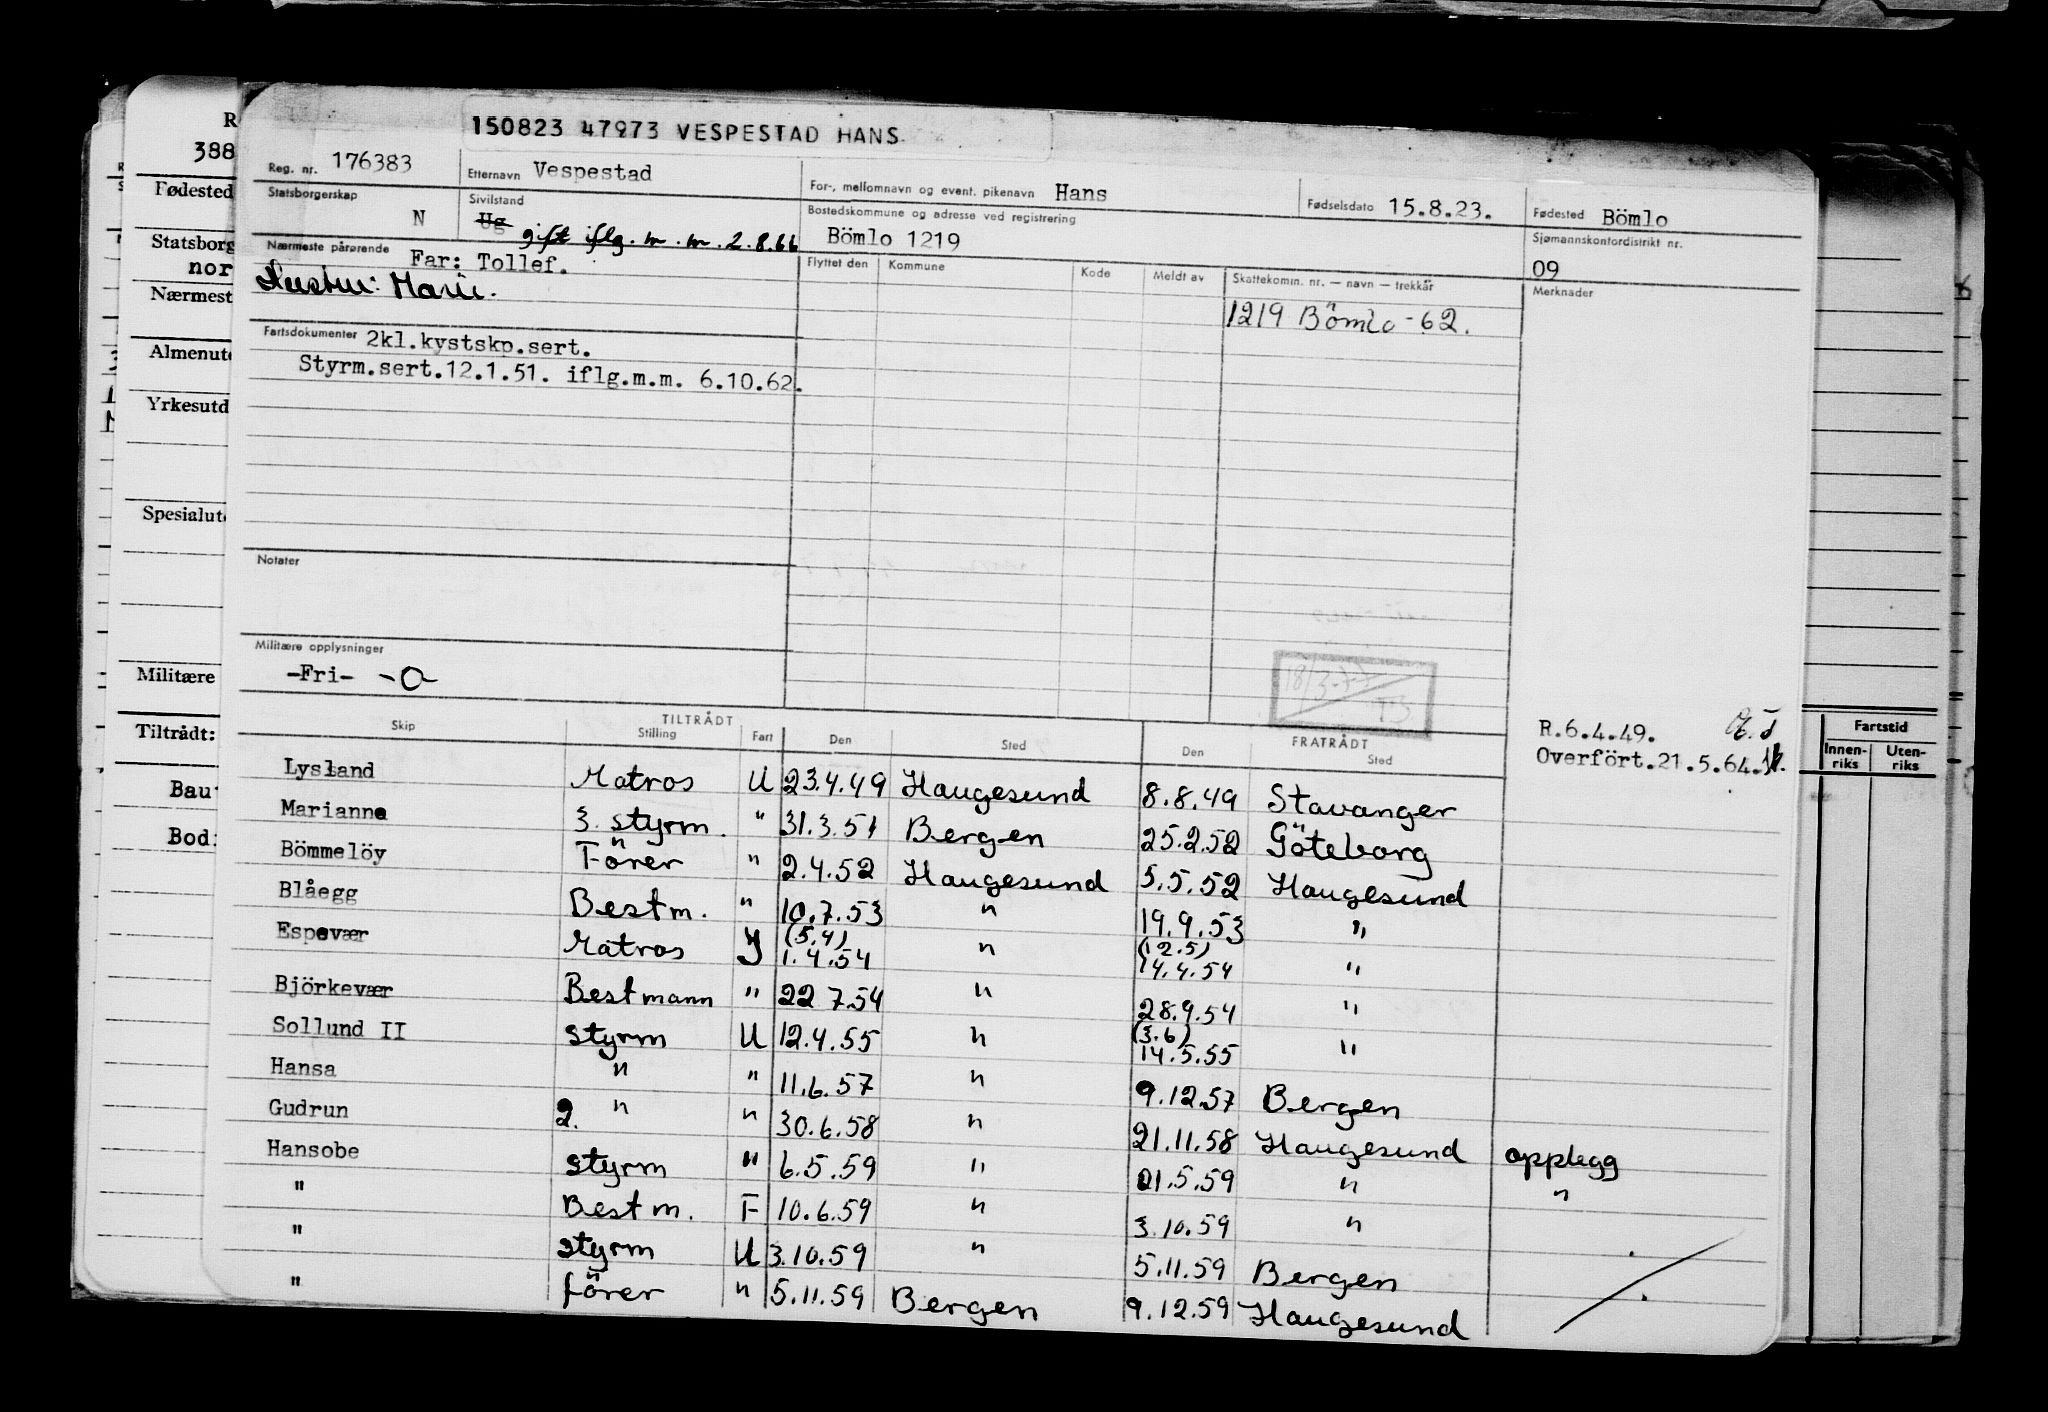 150823 47973 VESPESTAD HANS
Reg. nr. 176383 Etternavn Vespestad For-, mellomnavn og event. pikenavn Hans Fødselsdato 15.8.23. Fødested Bömlo
Statsborgerskap N Sivilstand Ug gift iflg. m.m. 2.8.66 Bostedskommune og adresse ved registrering Bömlo 1219 Sjømannskontordistrikt nr. 09
Nærmeste pårørende Far: Tollef. Flyttet den Kommune Kode Meldt av Skattekomm. nr. — navn — trekkår Merknader
Hustru: Marie.
1219 Bömlo - 62.
Fartsdokumenter 2kl.kystskp.sert.
Styrm.sert.12.1.51. iflg.m.m. 6.10.62.
Notater
Militære opplysninger
-Fri- -O-
18/3-77
TS
R.6.4.49.
Overfört.21.5.64.
TILTRÅDT FRATRÅDT
Skip Stilling Fart Den Sted Den Sted
Lysland Matros U 23.4.49 Haugesund 8.8.49 Stavanger
Marianne 3. styrm. " 31.3.51 Bergen 25.2.52 Göteborg
Bömmelöy Förer " 2.4.52 Haugesund 5.5.52 Haugesund
Blåegg Bestm. " 10.7.53 " 19.9.53 "
Espevær Matros J (5.4) 1.4.54 " (12.5) 14.4.54 "
Björkevær Bestmann " 22 7.54 " 28.9.54 "
Sollund II styrm U 12.4.55 " (3.6) 14.5.55 "
Hansa " " 11.6.57 " 9.12.57 Bergen
Gudrun 2. " " 30.6.58 " 21.11.58 Haugesund opplegg
Hansobe styrm " 6.5.59 " 21.5.59 " "
" Bestm. F 10.6.59 " 3.10.59 "
" styrm U 3.10.59 " 5.11.59 Bergen
" förer " 5.11.59 Bergen 9.12.59 Haugesund
R
388
Fødested
Statsborg
nor
Nærmest
Almenut
Yrkesutd
Spesialut
Militære
Tiltrådt:
Bau
Bod
Fartstid
Innen-riks Uten-riks